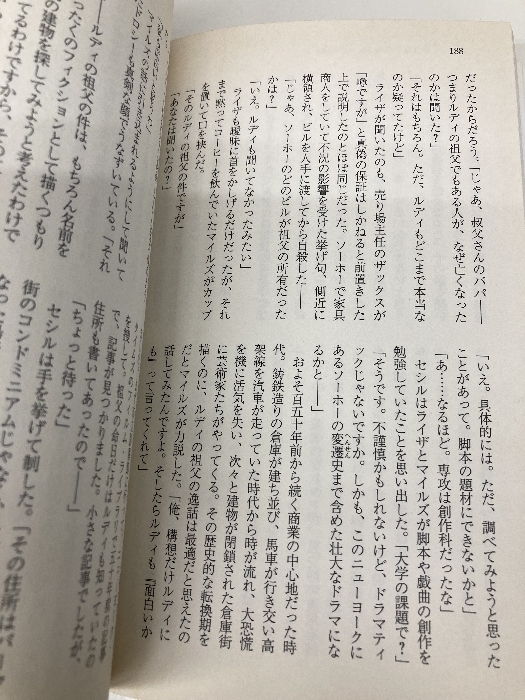 188
だったからだろう。「じゃあ、叔父さんのパパ――
つまりルディの祖父でもある人が、なぜ亡くなった
のかは聞いた?」
「それはもちろん。ただ、ルディもどこまで本当な
のか疑ってたけど」
ライザが聞いたのも、売り場主任のザックスが
「噂ですが」と真偽の保証はしかねると前置きした
上で説明したのとほぼ同じだった。ソーホーで家具
商人をしていて不況の影響を受けた挙げ句、側近に
横領され、ビルを人手に渡してから自殺した――
「じゃあ、ソーホーのどのビルが祖父の所有だった
かは?」
「いえ。ルディも聞いてなかったみたい」
ライザも曖昧に首をかしげるだけだったが、それ
まで黙ってコーヒーを飲んでいたマイルズがカップ
を置いて口を挟んだ。
「そのルディの祖父の件ですが」
「あなたは聞いたの?」
「いえ。具体的には。ただ、調べてみようと思った
ことがあって。脚本の題材にできないかと」
「あ……なるほど。専攻は創作科だったな」
セシルはライザとマイルズが脚本や戯曲の創作を
勉強していたことを思い出した。「大学の課題で?」
「そうです。不謹慎かもしれないけど、ドラマティ
ックじゃないですか。しかも、このニューヨークに
あるソーホーの変遷史まで含めた壮大なドラマにな
るかと――」
およそ百五十年前から続く商業の中心地だった時
代。鋳鉄造りの倉庫が建ち並び、馬車が行き交い高
架線を汽車が走っていた時代から時が流れ、大恐慌
を機に活気を失い、次々と建物が閉鎖された倉庫街
に芸術家たちがやってくる。その歴史的な転換期を
描くのに、ルディの祖父の逸話は最適だと思えたの
だとマイルズが力説した。「俺、構想だけルディに
話してみたんですよ。そしたらルディも『面白いか
も』って言ってくれて」
ドロシーも真剣な顔でうなずいている。「それ
――ルディの祖父の件は、もちろん名前を
ったくのフィクションとして描くつもり
の建物を探してみようと考えたわけで
てるわけですから、そ
で、記事が見つかりました。小さな記事でしたが、
住所も書いてあったので」
「ちょっと待った」
セシルは手を挙げて制した。「その住所はバー
街のコンドミニアムじゃな